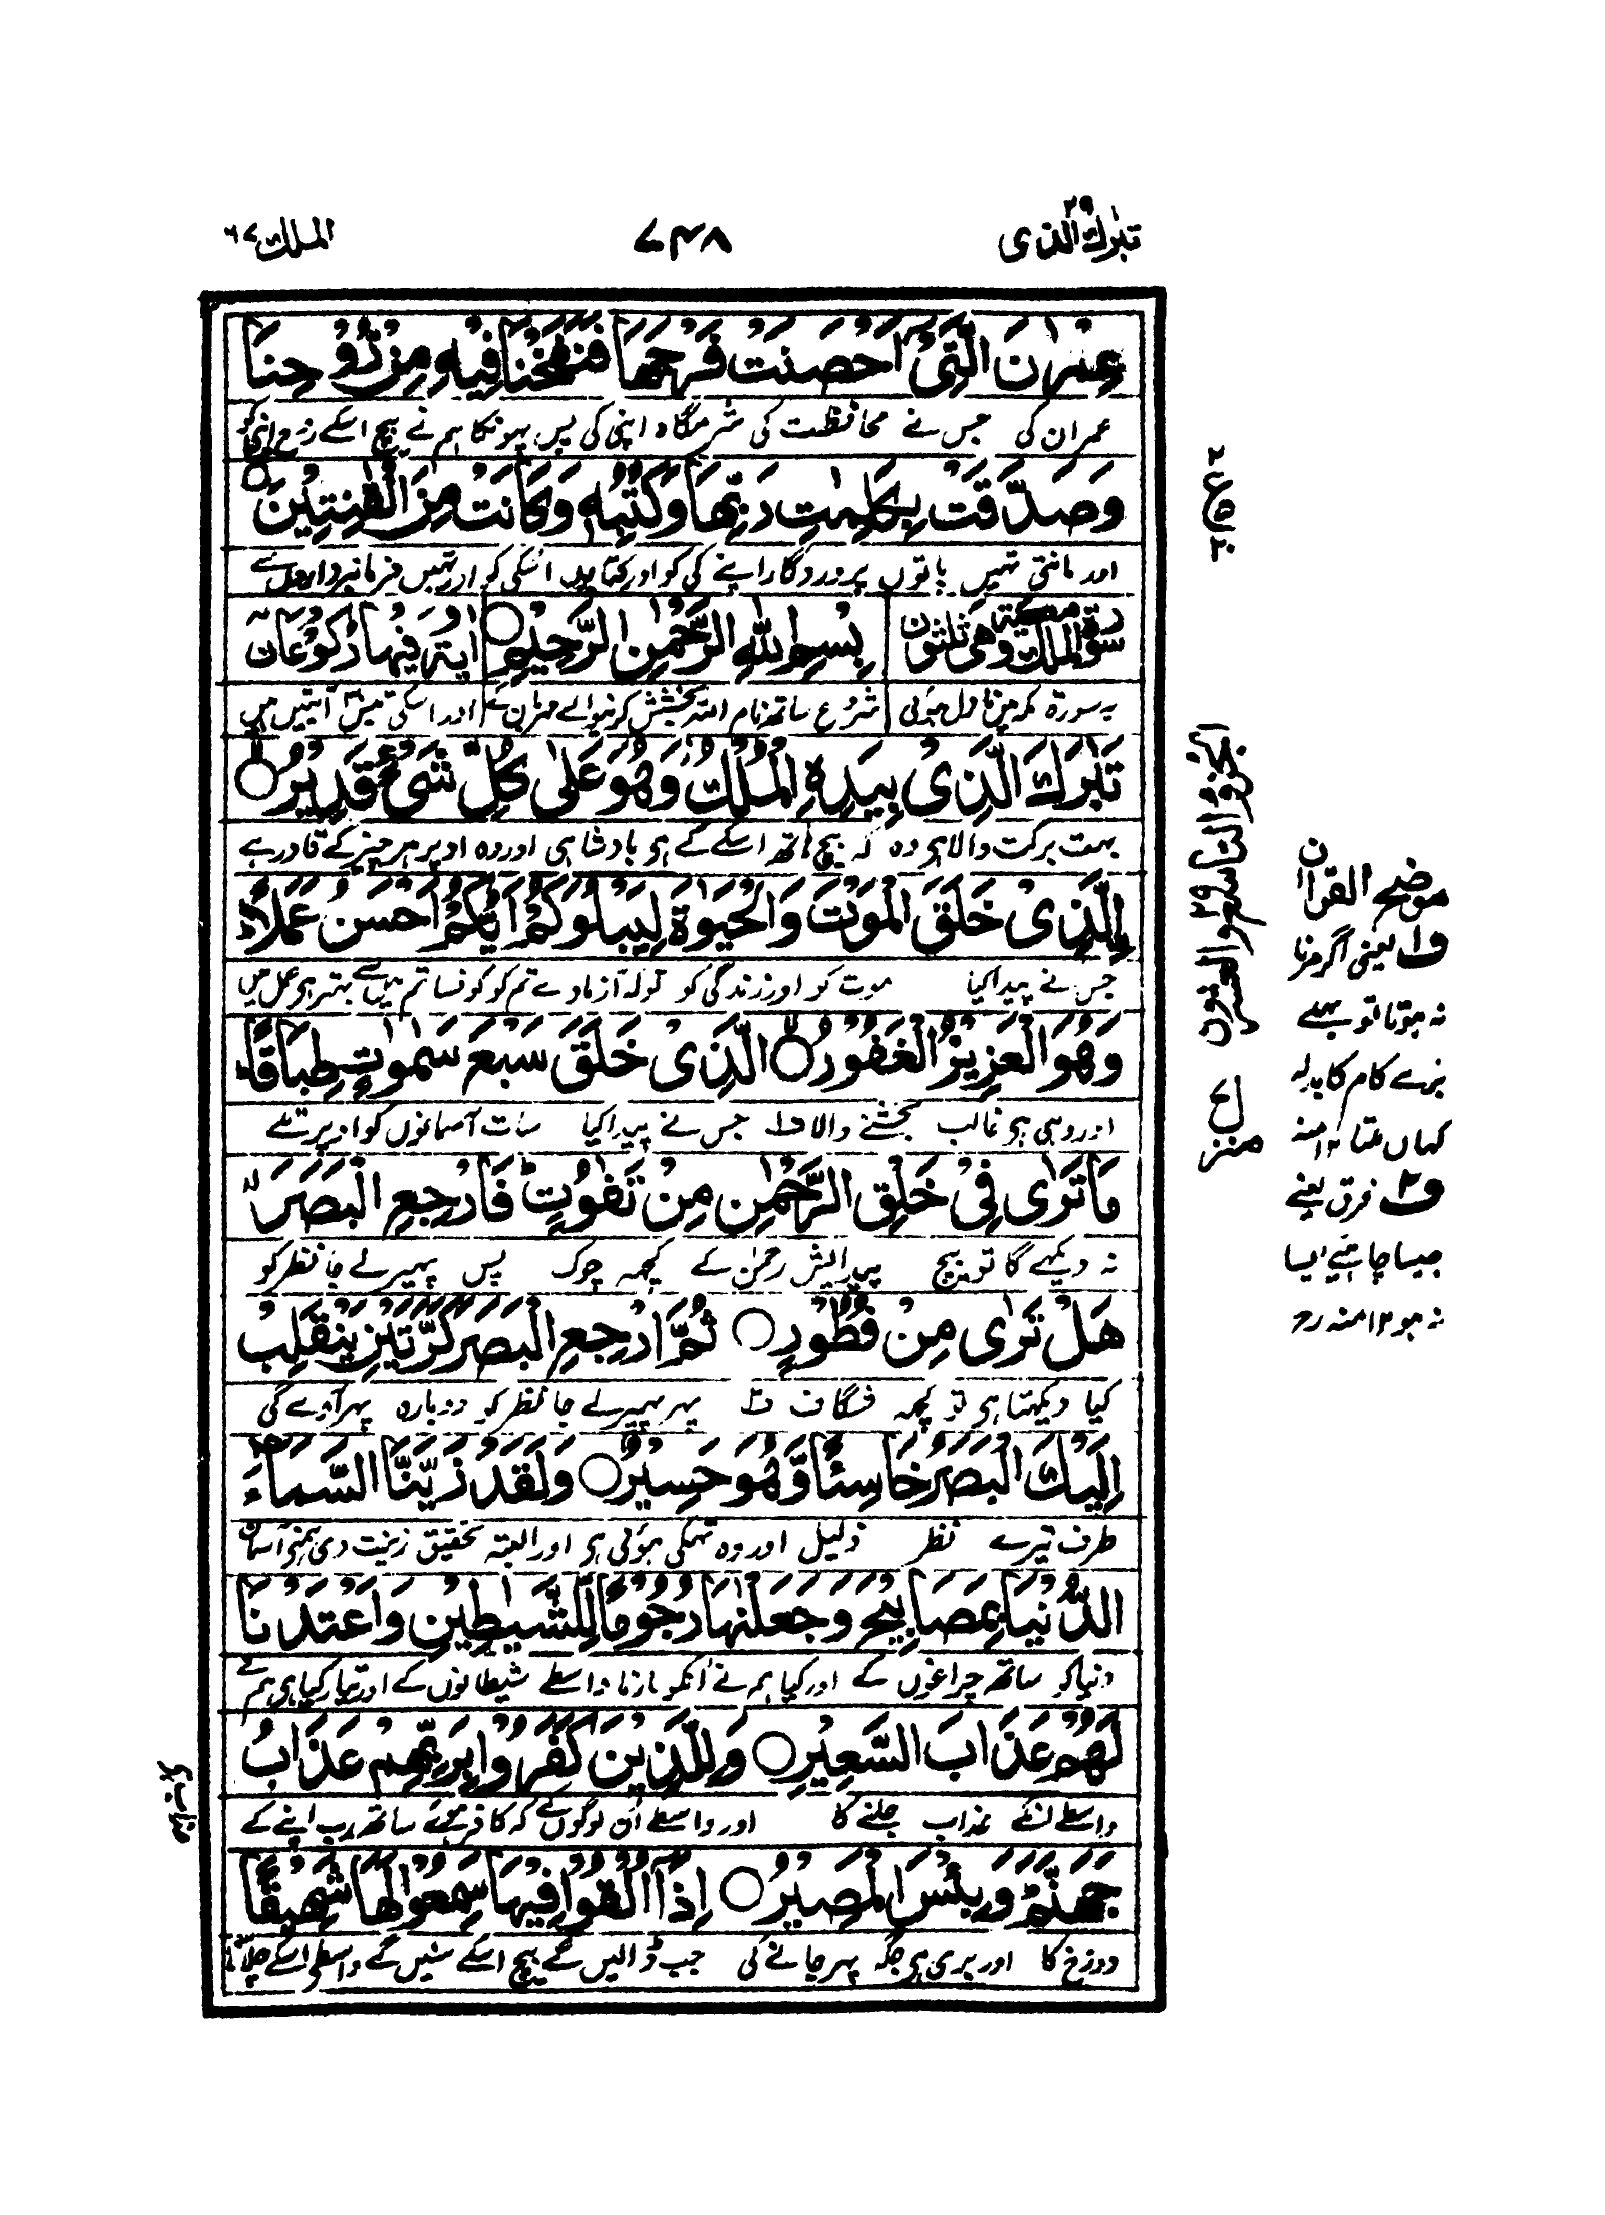 تبٰرك الذی ٢٩
٧٤٨
الملك ٦٧
عِمْرٰنَ الَّتِیْٓ اَحْصَنَتْ فَرْجَهَا فَنَفَخْنَا فِیْهِ مِنْ رُّوْحِنَا
عمران کی جس نے محافظت کی شرمگاہ اپنی کی پس پھونکا ہم نے بیچ اسکے روح اپنی کو
وَصَدَّقَتْ بِكَلِمٰتِ رَبِّهَا وَكُتُبِهٖ وَكَانَتْ مِنَ الْقٰنِتِیْنَ
اور مانتی تھیں باتوں پروردگار اپنے کی کو اور کتابوں اسکی کو اور تھیں فرمانبرداروں سے
سورة الملك مكیة وهی ثلثون
بِسْمِ اللّٰهِ الرَّحْمٰنِ الرَّحِیْمِ
اٰیة وفیها ركوعان
یہ سورة مکہ میں نازل ہوئی
شروع ساتھ نام اللہ بخشش کرنیوالے مہربان کے
اور اسکی تیس آیتیں ہیں
تَبٰرَكَ الَّذِیْ بِیَدِهِ الْمُلْكُ وَهُوَ عَلٰی كُلِّ شَیْءٍ قَدِیْرُ
بہت برکت والا ہی وہ کہ بیچ ہاتھ اسکے کے ہی بادشاہی اور وہ اوپر ہر چیز کے قادر ہے
الَّذِیْ خَلَقَ الْمَوْتَ وَالْحَیٰوةَ لِیَبْلُوَكُمْ اَیُّكُمْ اَحْسَنُ عَمَلًا
جس نے پیدا کیا موت کو اور زندگی کو توکہ آزماوے تم کو کونسا تم میں سے بہتر ہی عمل میں
وَهُوَ الْعَزِیْزُ الْغَفُوْرُ الَّذِیْ خَلَقَ سَبْعَ سَمٰوٰتٍ طِبَاقًا
اور وہی ہی غالب بخشنے والا ف۱ جس نے پیدا کیا سات آسمانوں کو اوپر تلے
مَا تَرٰی فِیْ خَلْقِ الرَّحْمٰنِ مِنْ تَفٰوُتٍ فَارْجِعِ الْبَصَرَ
نہ دیکھے گا تو بیچ پیدایش رحمٰن کے کچھ چوک پس پھیر لے جا نظر کو
هَلْ تَرٰی مِنْ فُطُوْرٍ ثُمَّ ارْجِعِ الْبَصَرَ كَرَّتَیْنِ یَنْقَلِبْ
کیا دیکھتا ہی تو کچھ شگاف ف۲ پھر پھیر لے جا نظر کو دوبارہ پھر آوے گی
اِلَیْكَ الْبَصَرُ خَاسِئًا وَّهُوَ حَسِیْرٌ وَلَقَدْ زَیَّنَّا السَّمَآءَ
طرف تیرے نظر ذلیل اور وہ تھکی ہوئی ہی اور البتہ تحقیق زینت دی ہمنے آسمان
الدُّنْیَا بِمَصَابِیْحَ وَجَعَلْنٰهَا رُجُوْمًا لِّلشَّیٰطِیْنِ وَاَعْتَدْنَا
دنیا کو ساتھ چراغوں کے اور کیا ہم نے انکو مارنا واسطے شیطانوں کے اور تیار کیا ہی ہم نے
لَهُمْ عَذَابَ السَّعِیْرِ وَلِلَّذِیْنَ كَفَرُوْا بِرَبِّهِمْ عَذَابُ
واسطے انکے عذاب جلنے کا اور واسطے ان لوگوں کے کہ کافر ہوئے ساتھ رب اپنے کے
عذاب کو
جَهَنَّمَ وَبِئْسَ الْمَصِیْرُ اِذَآ اُلْقُوْا فِیْهَا سَمِعُوْا لَهَا شَهِیْقًا
دوزخ کا اور بری ہی جگہ پھر جانے کی جب ڈالیں گے بیچ اسکے سنیں گے واسطے اسکے چلانا
الجزو التاسع والعشرون ٢٩
منزل
موضح القرآن
ف۱ یعنی اگر مرنا
نہ ہوتا تو بھلے
برے کام کا بدلہ
کہاں ملتا ١٢ منہ
ف۲ فرق یعنے
جیسا چاہئے ایسا
نہ ہو ١٢ منہ رح